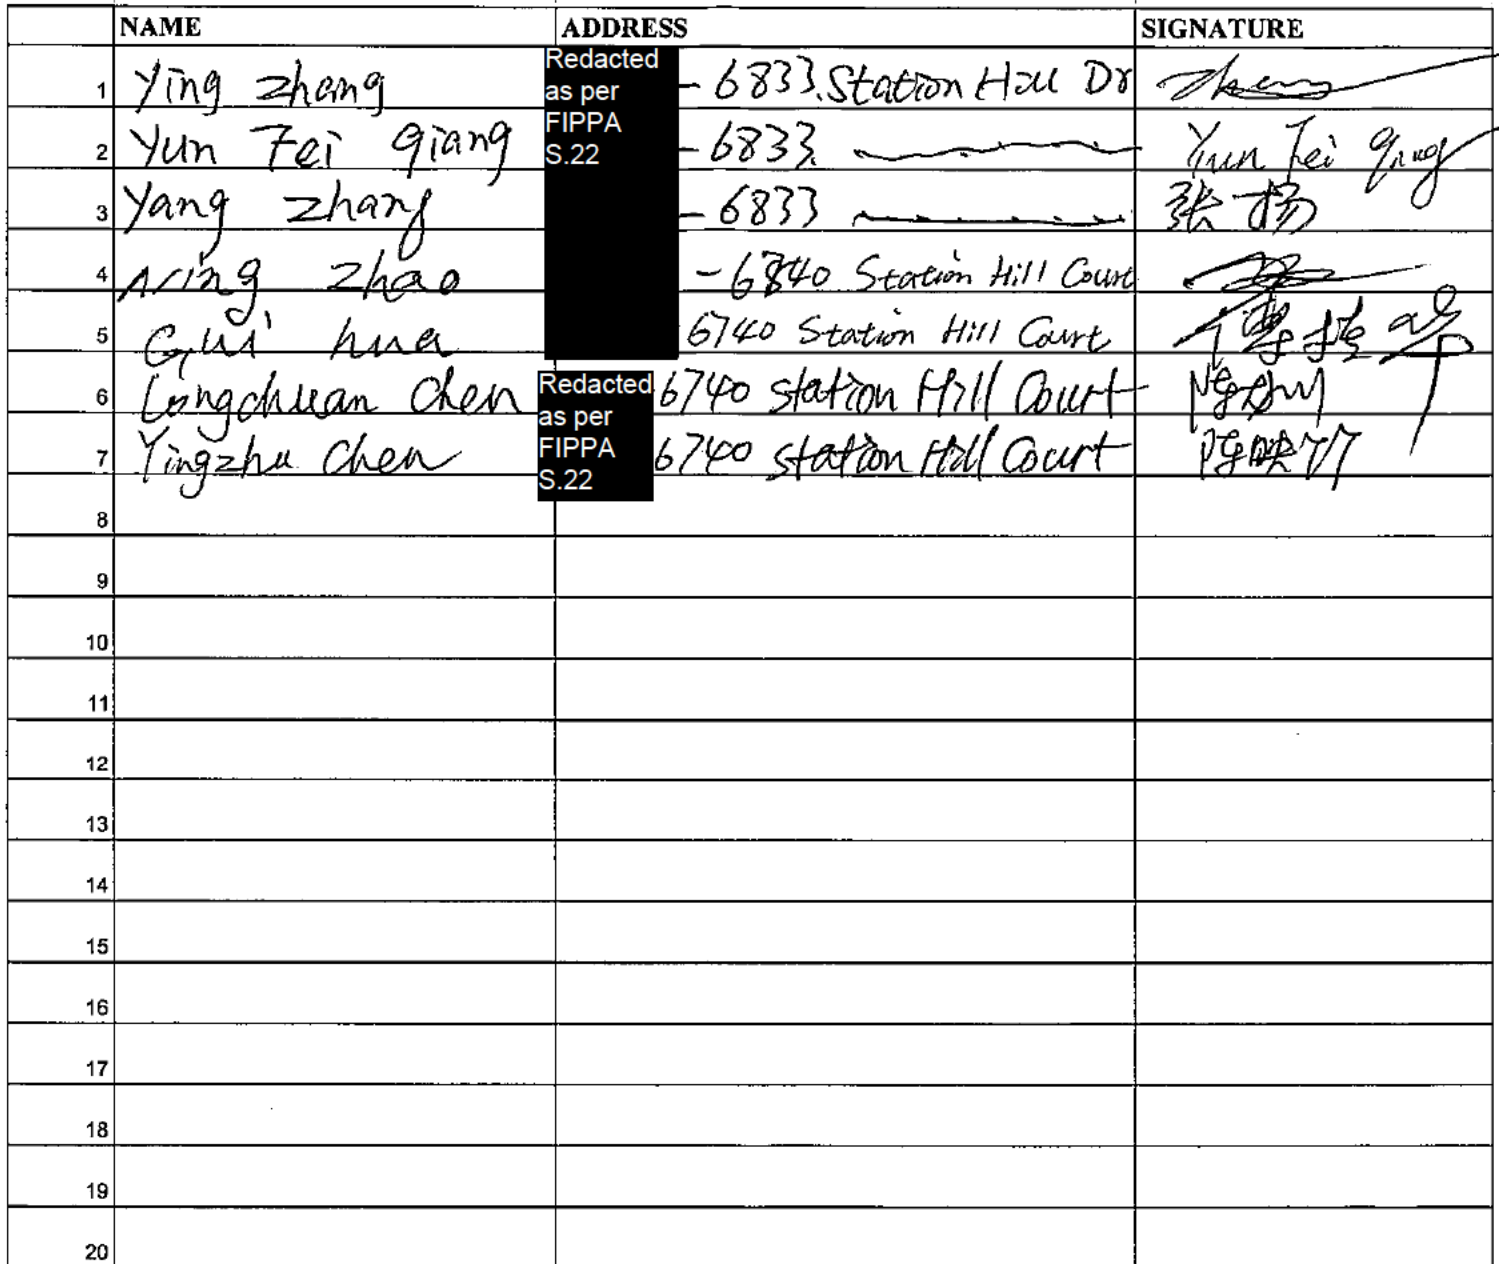 NAME ADDRESS SIGNATURE
1 Ying Zhang Redacted as per FIPPA S.22 - 6833 Station Hill Dr
2 Yun Fei qiang - 6833 Yun Fei qiang
3 Yang Zhang - 6833 张扬
4 Zhao - 6840 Station Hill Court
5 Gui hua 6740 Station Hill Court
6 Longchuan Chen Redacted as per FIPPA S.22 6740 station Hill Court
7 Yingzhu Chen 6740 station Hill Court
8
9
10
11
12
13
14
15
16
17
18
19
20